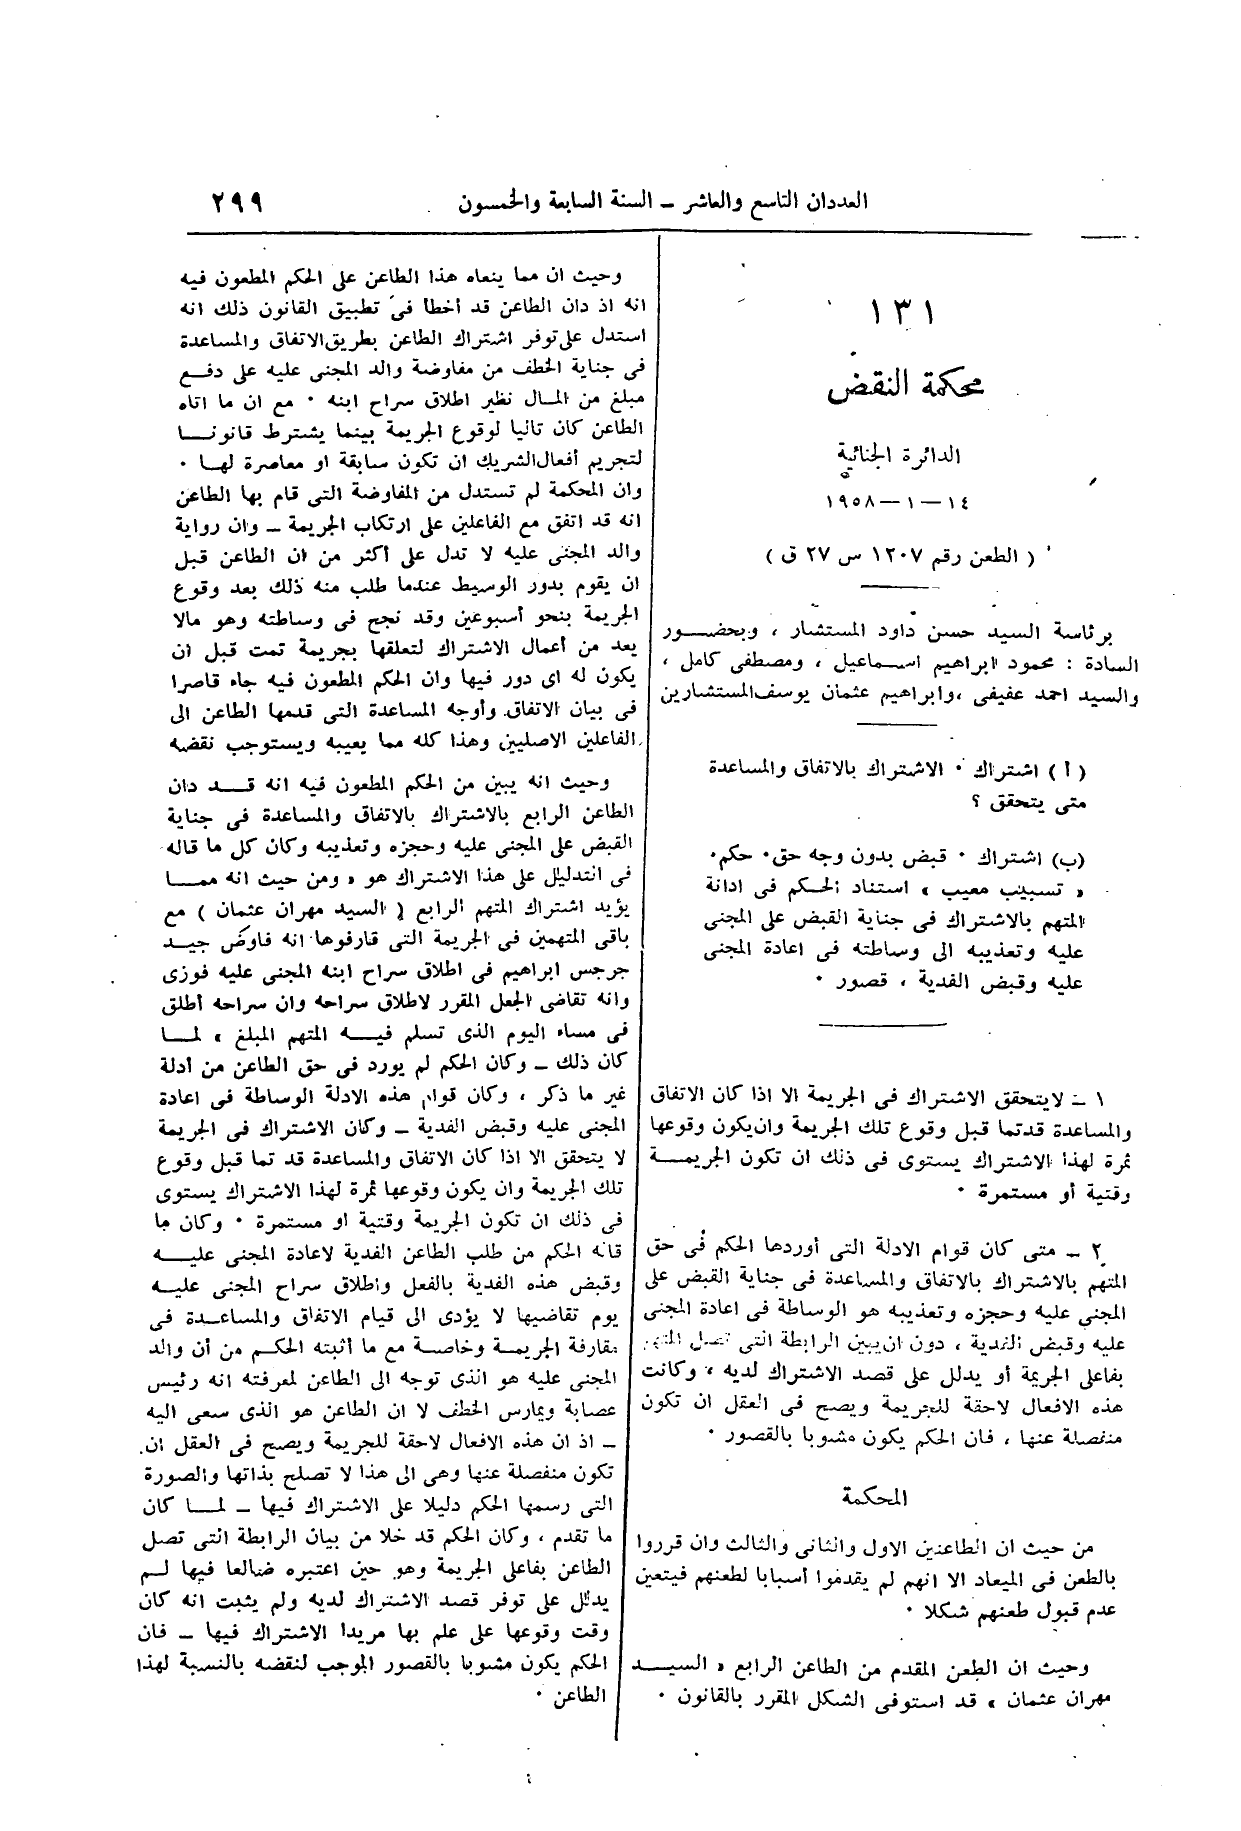 العددان التاسع والعاشر ـ السنة السابعة والخمسون
٢٩٩
١٣١
محكمة النقض
الدائرة الجنائية
١٤ — ١ — ١٩٥٨
( الطعن رقم ١٢٠٧ س ٢٧ ق )
برئاسة السيد حسن داود المستشار ، وبحضور
السادة : محمود ابراهيم اسماعيل ، ومصطفى كامل ،
والسيد احمد عفيفى ،وابراهيم عثمان يوسف المستشارين
( أ ) اشتراك ٠ الاشتراك بالاتفاق والمساعدة
متى يتحقق ؟
(ب) اشتراك ٠ قبض بدون وجه حق٠ حكم٠
« تسبيب معيب » استناد الحكم فى ادانة
المتهم بالاشتراك فى جناية القبض على المجنى
عليه وتعذيبه الى وساطته فى اعادة المجنى
عليه وقبض الفدية ، قصور ٠
١ ـ لايتحقق الاشتراك فى الجريمة الا اذا كان الاتفاق
والمساعدة قدتما قبل وقوع تلك الجريمة وان يكون وقوعها
ثمرة لهذا الاشتراك يستوى فى ذلك ان تكون الجريمة
وقتية أو مستمرة ٠
٢ ـ متى كان قوام الادلة التى أوردها الحكم فى حق
المتهم بالاشتراك بالاتفاق والمساعدة فى جناية القبض على
المجنى عليه وحجزه وتعذيبه هو الوساطة فى اعادة المجنى
عليه وقبض الفدية ، دون ان يبين الرابطة التى تصل المتهم
بفاعلى الجريمة أو يدلل على قصد الاشتراك لديه ، وكانت
هذه الافعال لاحقة للجريمة ويصح فى العقل ان تكون
منفصلة عنها ، فان الحكم يكون مشوبا بالقصور ٠
المحكمة
من حيث ان الطاعنين الاول والثانى والثالث وان قرروا
بالطعن فى الميعاد الا انهم لم يقدموا أسبابا لطعنهم فيتعين
عدم قبول طعنهم شكلا ٠
وحيث ان الطعن المقدم من الطاعن الرابع « السيد
مهران عثمان » قد استوفى الشكل المقرر بالقانون ٠
وحيث ان مما ينعاه هذا الطاعن على الحكم المطعون فيه
انه اذ دان الطاعن قد أخطأ فى تطبيق القانون ذلك انه
استدل على توفر اشتراك الطاعن بطريق الاتفاق والمساعدة
فى جناية الخطف من مفاوضة والد المجنى عليه على دفع
مبلغ من المال نظير اطلاق سراح ابنه ٠ مع ان ما اتاه
الطاعن كان تاليا لوقوع الجريمة بينما يشترط قانونا
لتجريم أفعال الشريك ان تكون سابقة او معاصرة لها ٠
وان المحكمة لم تستدل من المفاوضة التى قام بها الطاعن
انه قد اتفق مع الفاعلين على ارتكاب الجريمة ـ وان رواية
والد المجنى عليه لا تدل على أكثر من ان الطاعن قبل
ان يقوم بدور الوسيط عندما طلب منه ذلك بعد وقوع
الجريمة بنحو أسبوعين وقد نجح فى وساطته وهو مالا
يعد من أعمال الاشتراك لتعلقها بجريمة تمت قبل ان
يكون له اى دور فيها وان الحكم المطعون فيه جاء قاصرا
فى بيان الاتفاق وأوجه المساعدة التى قدمها الطاعن الى
الفاعلين الاصليين وهذا كله مما يعيبه ويستوجب نقضه
وحيث انه يبين من الحكم المطعون فيه انه قد دان
الطاعن الرابع بالاشتراك بالاتفاق والمساعدة فى جناية
القبض على المجنى عليه وحجزه وتعذيبه وكان كل ما قاله
فى التدليل على هذا الاشتراك هو « ومن حيث انه مما
يؤيد اشتراك المتهم الرابع ( السيد مهران عثمان ) مع
باقى المتهمين فى الجريمة التى قارفوها انه فاوض جيد
جرجس ابراهيم فى اطلاق سراح ابنه المجنى عليه فوزى
وانه تقاضى الجعل المقرر لاطلاق سراحه وان سراحه أطلق
فى مساء اليوم الذى تسلم فيه المتهم المبلغ » لما
كان ذلك ـ وكان الحكم لم يورد فى حق الطاعن من أدلة
غير ما ذكر ، وكان قوام هذه الادلة الوساطة فى اعادة
المجنى عليه وقبض الفدية ـ وكان الاشتراك فى الجريمة
لا يتحقق الا اذا كان الاتفاق والمساعدة قد تما قبل وقوع
تلك الجريمة وان يكون وقوعها ثمرة لهذا الاشتراك يستوى
فى ذلك ان تكون الجريمة وقتية او مستمرة ٠ وكان ما
قاله الحكم من طلب الطاعن الفدية لاعادة المجنى عليه
وقبض هذه الفدية بالفعل واطلاق سراح المجنى عليه
يوم تقاضيها لا يؤدى الى قيام الاتفاق والمساعدة فى
مقارفة الجريمة وخاصة مع ما أثبته الحكم من أن والد
المجنى عليه هو الذى توجه الى الطاعن لمعرفته انه رئيس
عصابة ويمارس الخطف لا ان الطاعن هو الذى سعى اليه
ـ اذ ان هذه الافعال لاحقة للجريمة ويصح فى العقل ان
تكون منفصلة عنها وهى الى هذا لا تصلح بذاتها والصورة
التى رسمها الحكم دليلا على الاشتراك فيها ـ لما كان
ما تقدم ، وكان الحكم قد خلا من بيان الرابطة التى تصل
الطاعن بفاعلى الجريمة وهو حين اعتبره ضالعا فيها لم
يدلل على توفر قصد الاشتراك لديه ولم يثبت انه كان
وقت وقوعها على علم بها مريدا الاشتراك فيها ـ فان
الحكم يكون مشوبا بالقصور الموجب لنقضه بالنسبة لهذا
الطاعن ٠